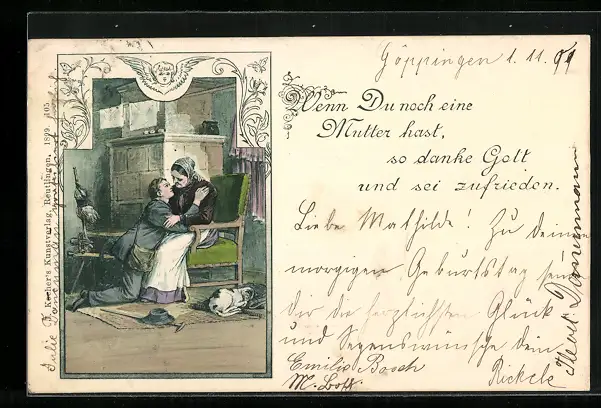 Göppingen 1. 11. 99
Wenn Du noch eine
Mutter hast,
so danke Gott
und sei zufrieden.
Liebe Mathilde! Zu Deinem
morgigen Geburtstag
dir die herzlichsten Glück
und Segenswünsche dein
Emilie Bosch
Rickele
Kocher's Kunstverlag, Reutlingen, 1899. 105.
Julie